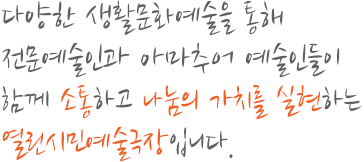 다양한 생활문화예술을 통해
전문예술인과 아마추어 예술인들이
함께 소통하고 나눔의 가치를 실현하는
열린시민예술극장입니다.